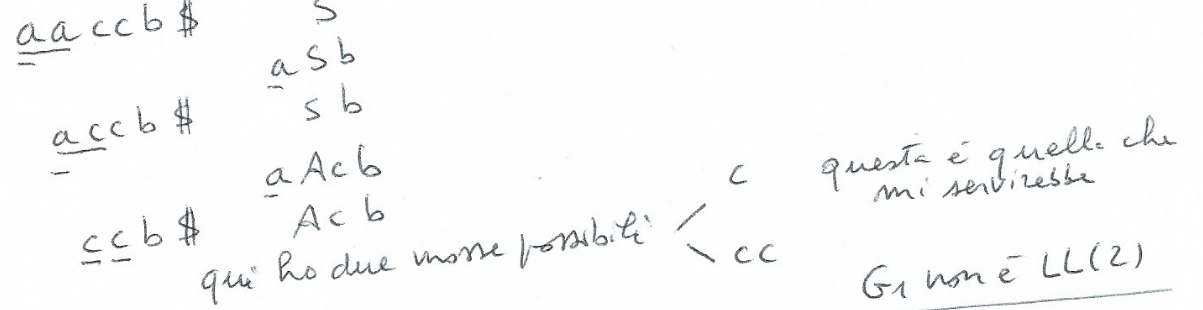 aaccb$ S
aSb
accb$ Sb
aAcb
ccb$ Acb
qui ho due mosse possibili
c questa è quella che mi servirebbe
cc
G1 non è LL(2)